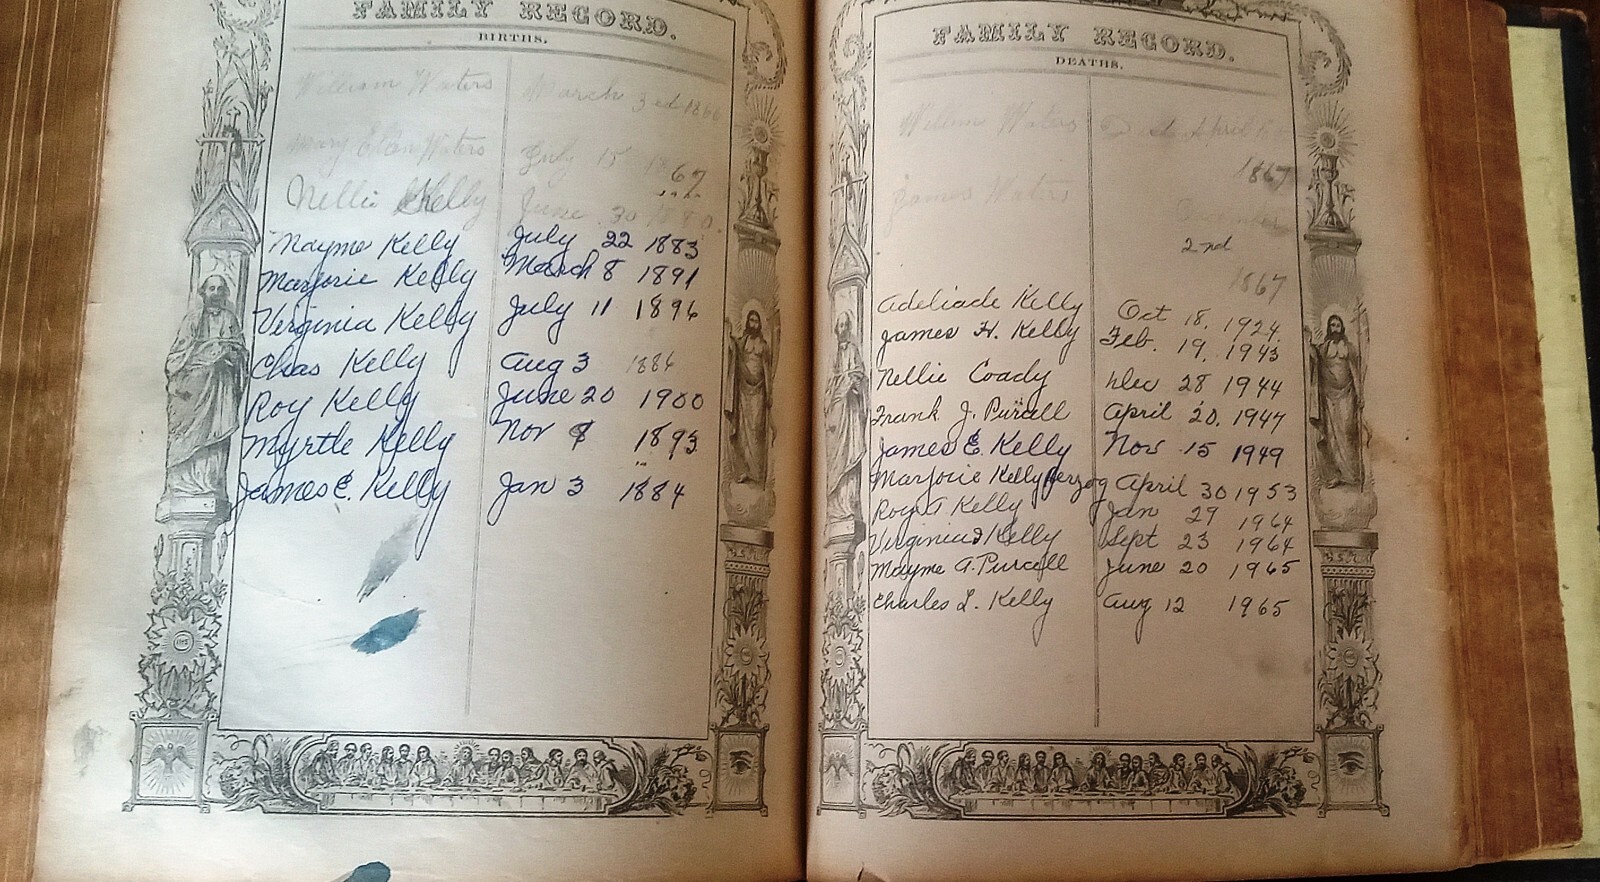 FAMILY RECORD.
BIRTHS.
William Waters March 3ed 1866
Mary Ellen Waters July 15 1867
Nellie Kelly June 30 1880.
Mayme Kelly July 22 1883
Marjorie Kelly March 8 1891
Virginia Kelly July 11 1896
Chas Kelly Aug 3 1886
Roy Kelly June 20 1900
Myrtle Kelly Nov 8 1893
James E. Kelly Jan 3 1884
FAMILY RECORD.
DEATHS.
William Waters April
1867
James Waters
2nd
1867
Adeliade Kelly Oct 18, 1924
James H. Kelly Feb. 19, 1943
Nellie Coady Dec 28 1944
Frank J. Purcell April 20, 1947
James E. Kelly Nov 15 1949
Marjorie Kelly Herzog April 30 1953
Roy A Kelly Jan 29 1964
Virginia Kelly Sept 23 1964
Mayme A. Purcell June 20 1965
Charles L. Kelly Aug 12 1965